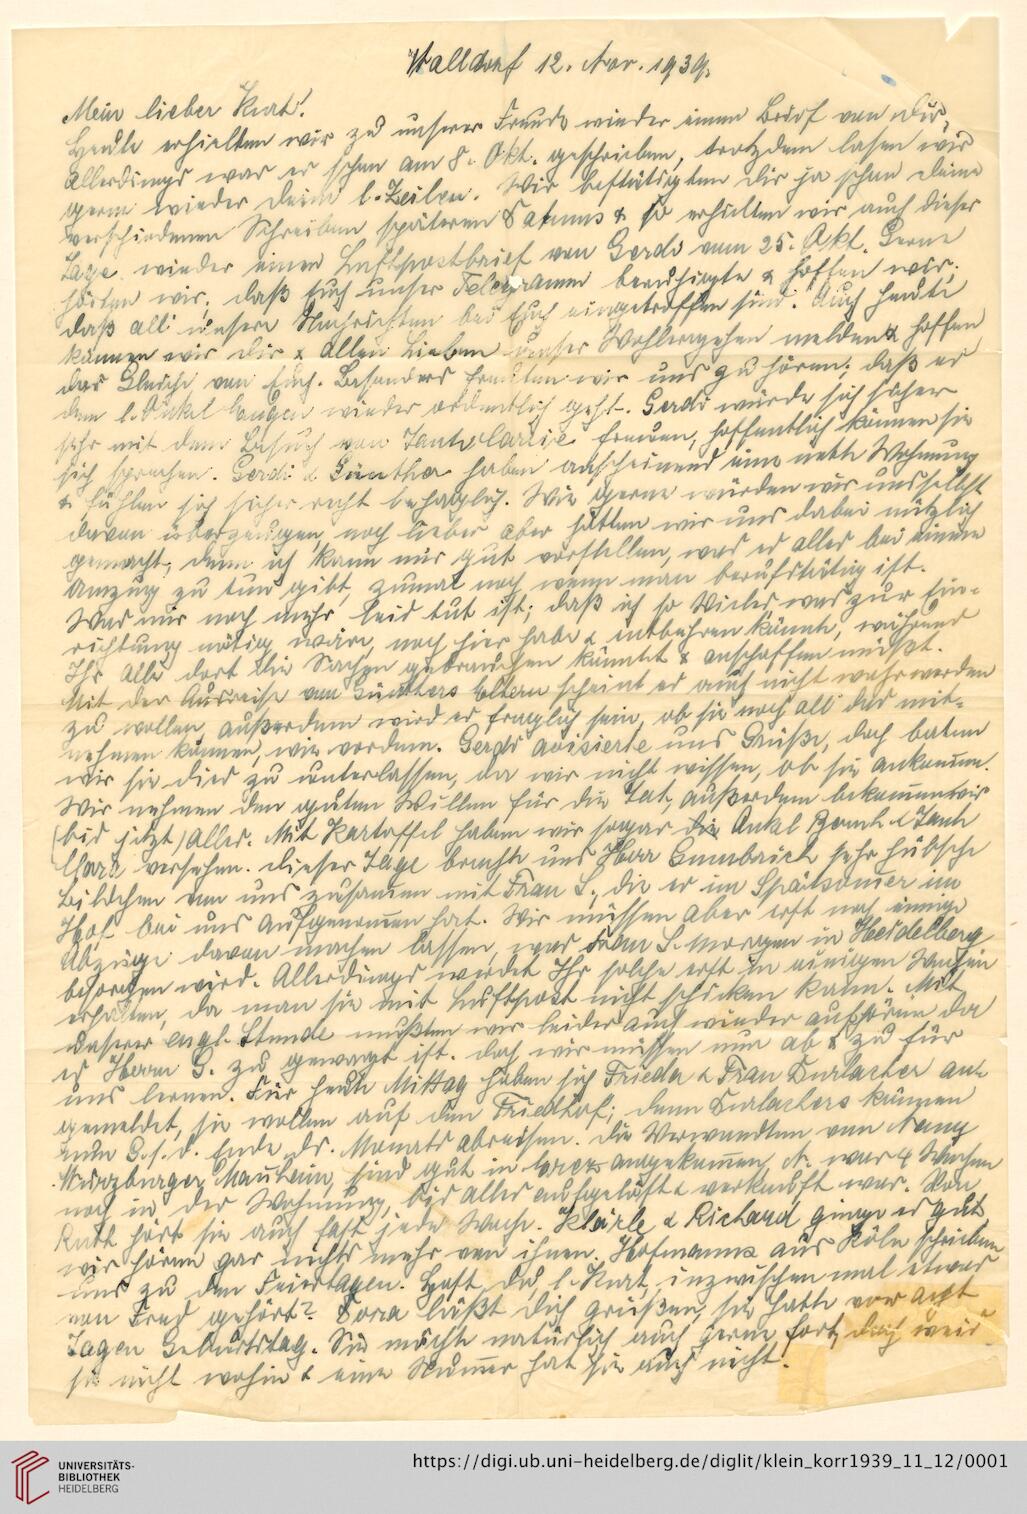 Walldorf 12. Nov. 1939.
Mein lieber Kurt!
Heute erhielten wir zu unserer Freude wieder einen Brief von Dir,
allerdings war er schon am 8. Okt. geschrieben, trotzdem lasen wir
gerne wieder Deine l. Zeilen. Wir bestätigten Dir ja schon Deine
verschiedenen Schreiben späteren Datums & so erhielten wir auch dieser
Tage wieder einen Luftpostbrief von Gerdi vom 25. Okt. Gerne
hörten wir, daß Euch unser Telegramm beruhigte & hoffen wir,
daß all unsere Nachrichten bei Euch eingetroffen sind. Auch heute
können wir Dir & allen Lieben unser Wohlergehen melden & hoffen
das Gleiche von Euch. Besonders freuten wir uns zu hören, daß es
dem l. Onkel Eugen wieder ordentlich geht. Gerdi würde sich sicher
sehr mit dem Besuch von Tante freuen, hoffentlich können sie
sich sprechen. Gerdi & Günther haben anscheinend eine nette Wohnung
& fühlen sich sicher recht behaglich. Wie gerne würden wir uns selbst
davon überzeugen, noch lieber aber hätten wir uns dabei nützlich
gemacht, denn ich kann mir gut vorstellen, was es alles bei einem
Umzug zu tun gibt, zumal noch wenn man berufstätig ist.
Was mir noch mehr leid tut ist, daß ich so Vieles was zur Ein-
richtung nötig wäre, noch hier habe & entbehren könnte, während
Ihr Alle dort die Sachen gebrauchen könntet & anschaffen müßt.
Mit der Ausreise von Günthers Eltern scheint es auch nicht wahr werden
zu wollen, außerdem wird es fraglich sein, ob sie noch all das mit-
nehmen können, wie vordem. Gerdi avisierte uns Grüße, doch baten
wir sie dies zu unterlassen, da wir nicht wissen, ob sie ankommen.
Wir nehmen den guten Willen für die Tat, außerdem bekommen wir
(bis jetzt) Alles. Mit Kartoffel haben wir sogar die Onkel & Tante
Clara versehen. Dieser Tage brachte uns Herr sehr hübsche
Bildchen von uns zusammen mit Frau S., die er im Spätsommer im
Hof bei uns aufgenommen hat. Wir müssen aber erst noch einige
Abzüge davon machen lassen, was Frau S. morgen in Heidelberg
besorgen wird. Allerdings werdet Ihr solche erst in einigen Wochen
erhalten, da man sie mit Luftpost nicht schicken kann. Mit
unserer engl. Stunde mußten wir leider auch wieder aufhören da
es Herrn G. zu gewagt ist. Doch wir müssen nun ab & zu für
uns lernen. Für heute Mittag haben sich Frieda & Frau Durlacher an-
gemeldet, sie wollen auf den Friedhof, denn Durlachers können
nun G. s. d. Ende ds. Monats abreisen. Die Verwandten von Nanny
Würzburger, Mannheim, sind gut in angekommen, N. war 4 Wochen
noch in der Wohnung, bis alles aufgelöst & verkauft war. Von
Ruth hört sie auch fast jede Woche. Klärle & Richard ginge es gut
wir hören gar nichts mehr von ihnen. Hofmanns aus Köln schrieben
uns zu den Feiertagen. Hast Du l. Kurt inzwischen mal etwas
von Fred gehört? Dora läßt Dich grüßen, sie hatte vor acht
Tagen Geburtstag. Sie möchte natürlich auch gerne fort, doch weiß
sie nicht wohin & eine Nummer hat sie auch nicht.
UNIVERSITÄTS-
BIBLIOTHEK
HEIDELBERG
https://digi.ub.uni-heidelberg.de/diglit/klein_korr1939_11_12/0001